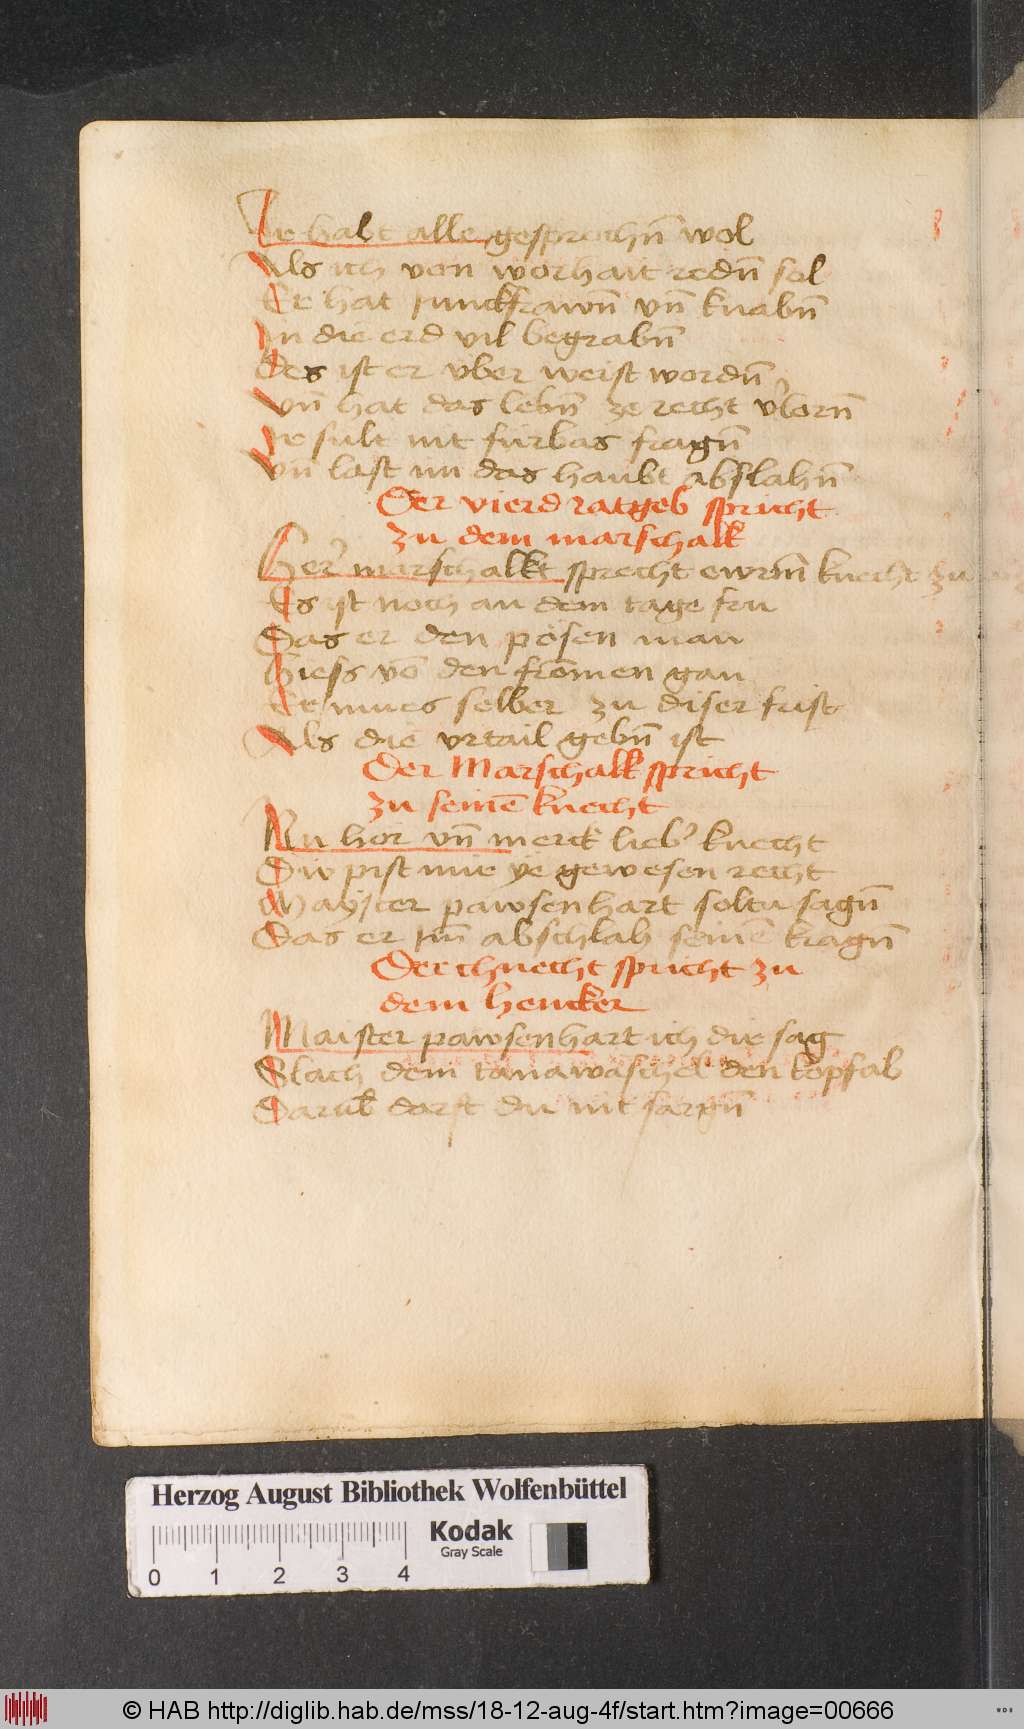 Ir habt alle gesprochn̄ wol
Als ich von worhait redn̄ sol
Er hat Junckfrawn̄ vn̄ knabn̄
In die erd vil begrabn̄
Des ist er vber weist wordn̄
Vn̄ hat das lebn̄ ze recht v̓lorn̄
Ir sult nit fürbas fragn̄
Vn̄ last im das haubt abslahn̄
Der vierd ratgeb spricht
zu dem marschalk
Her̓ marschalkt sprecht ewrm̄ knecht zu
Es ist noch an dem tage fru
Das er den pösen man
Hiess vō den fromen gan
Er mues selber zu diser frist
Als die vrtail gebn̄ ist
Der Marschalk spricht
zu seinē knecht
Nu hör vn̄ merck lieb̓ knecht
Du pist mir ye gewesen recht
Mayster pawsenhart soltu sagn̄
Das er Im̄ abschlah seinē kragn̄
Der chnecht spricht zu
dem hencker
Maister pawsenhart ich dir sag
Slach dem tanawäschel den kopf ab
Darub̄ darft du nit sargn̄
Herzog August Bibliothek Wolfenbüttel
Kodak
Gray Scale
0 1 2 3 4
© HAB http://diglib.hab.de/mss/18-12-aug-4f/start.htm?image=00666